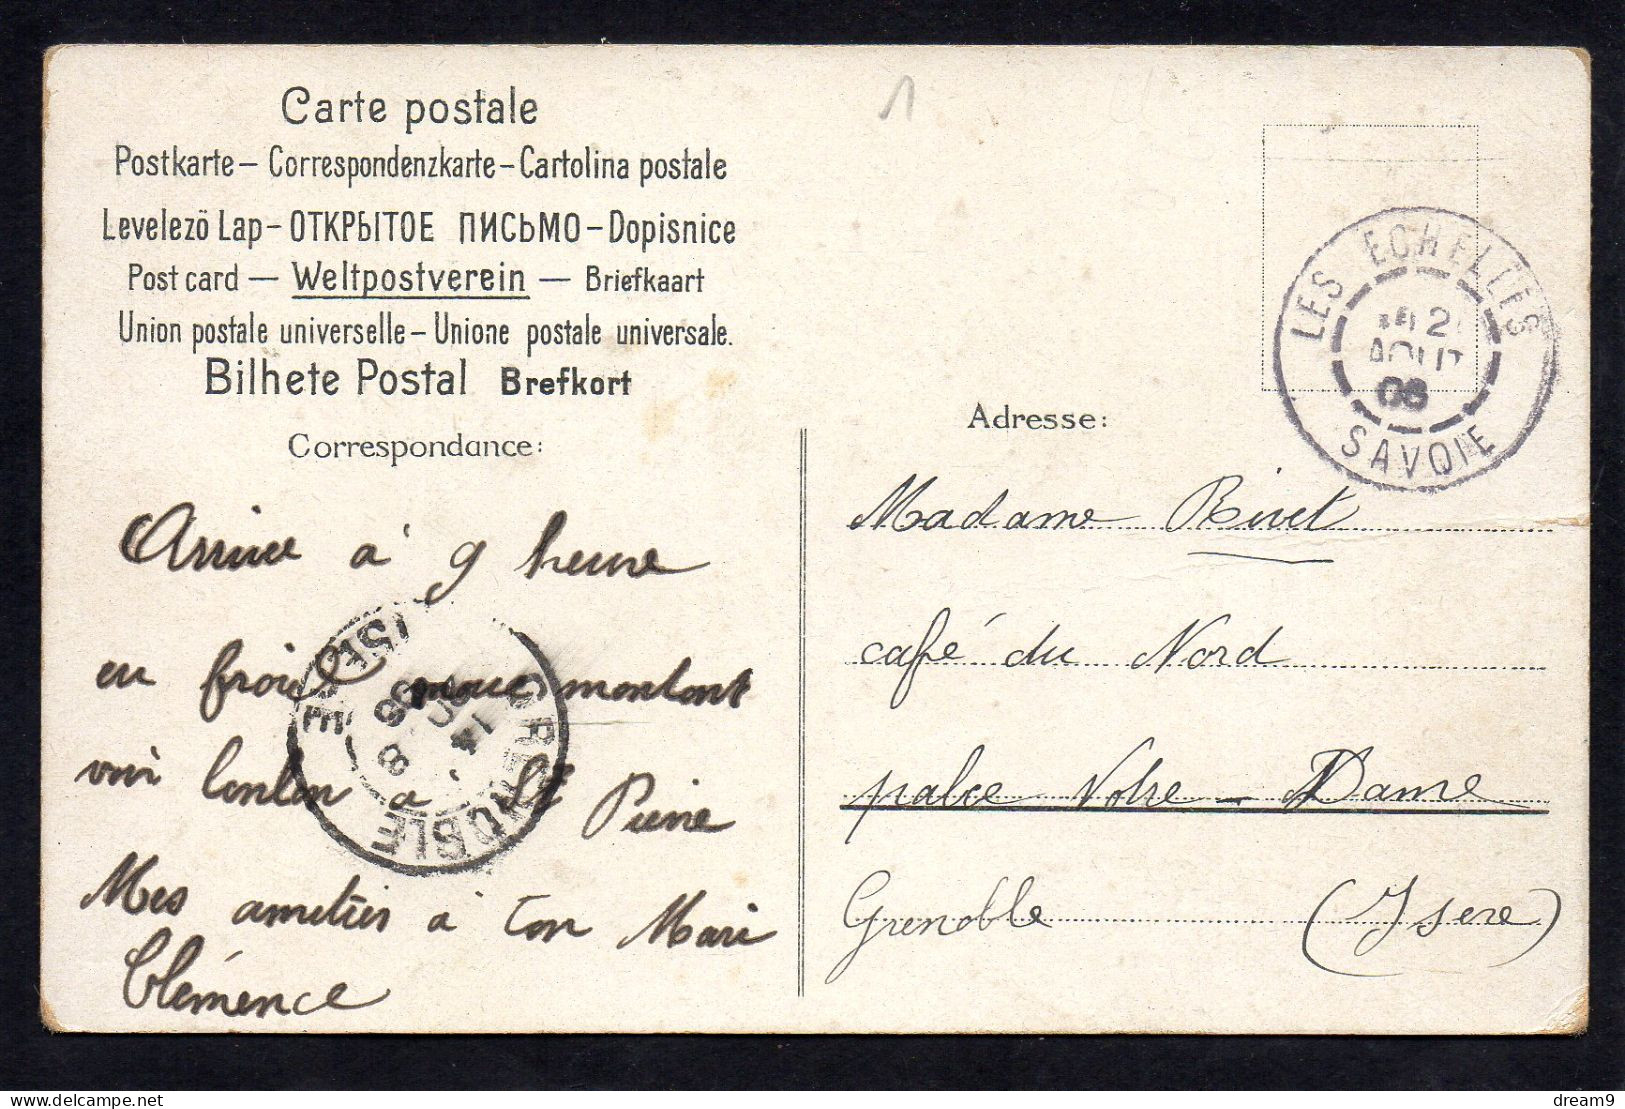 Carte postale
Postkarte – Correspondenzkarte – Cartolina postale
Levelezö Lap – ОТКРЫТОЕ ПИСЬМО – Dopisnice
Post card — Weltpostverein — Briefkaart
Union postale universelle – Unione postale universale.
Bilhete Postal Brefkort
Correspondance:
Arrive a 9 heure
en montont
voir tonton a St Pierre
Mes amitiés a ton Mari
Clémence
GRENOBLE
ISERE
1
LES ECHELLES
AOUT
08
SAVOIE
Adresse:
Madame Rivet
café du Nord
palce Notre – Dame
Grenoble (Isere)
dream9